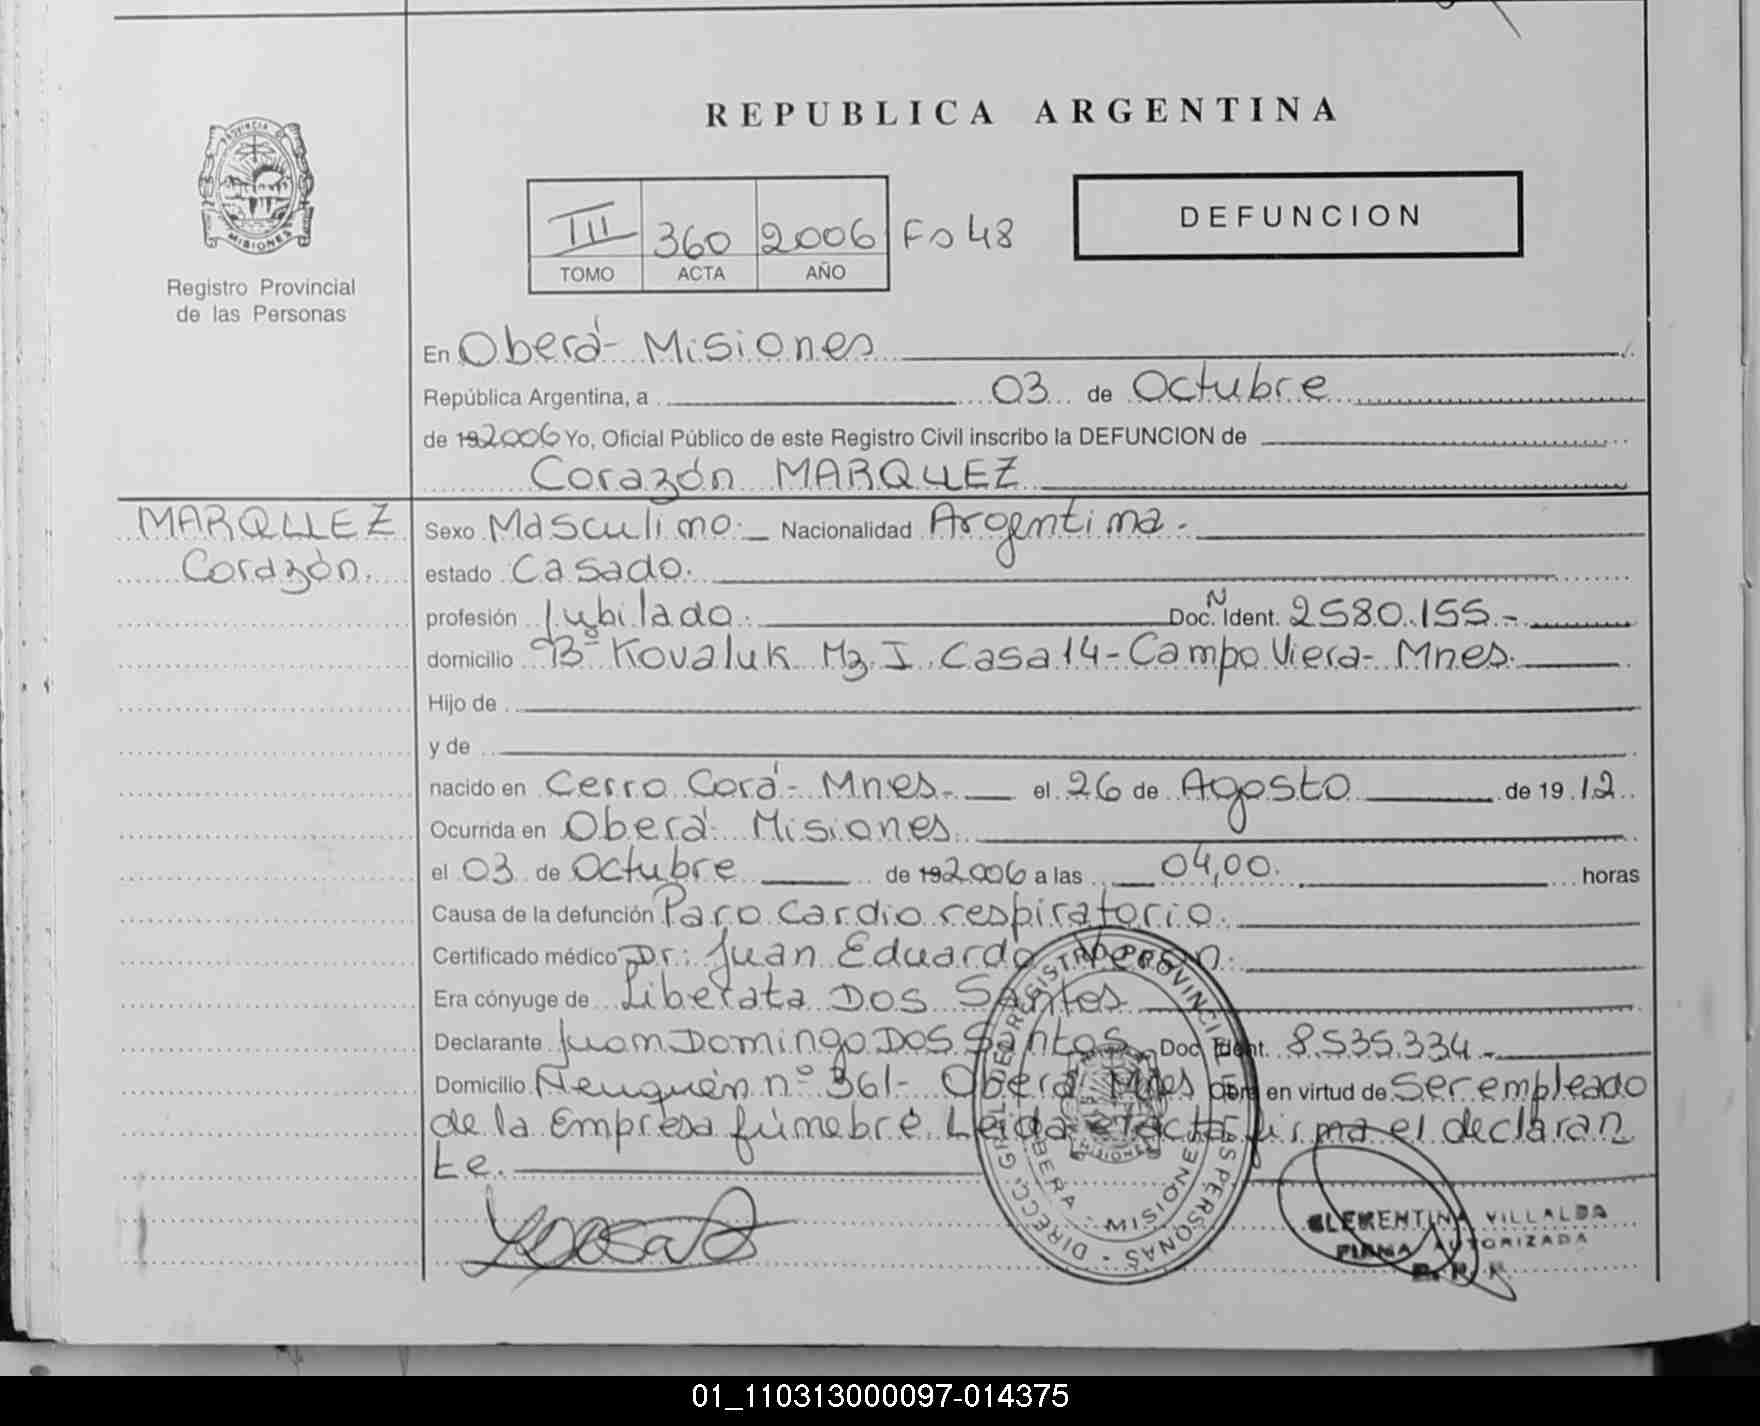 REPUBLICA ARGENTINA
PROVINCIA DE
MISIONES
Registro Provincial
de las Personas
III 360 2006 Fo 48
TOMO ACTA AÑO
DEFUNCION
En Oberá - Misiones
República Argentina, a 03 de Octubre
de 192006 Yo, Oficial Público de este Registro Civil inscribo la DEFUNCION de
Corazón MARQUEZ
MARQUEZ
Corazón.
Sexo Masculino.- Nacionalidad Argentina.-
estado Casado.
profesión Jubilado. Doc. N Ident. 2580.155.-
domicilio Bº Kovaluk Mz. I. Casa 14 - Campo Viera - Mnes.
Hijo de
y de
nacido en Cerro Corá - Mnes.- el 26 de Agosto de 19 12
Ocurrida en Oberá - Misiones.
el 03 de Octubre de 192006 a las 04,00. horas
Causa de la defunción Paro cardio respiratorio.
Certificado médico Dr: Juan Eduardo
Era cónyuge de Liberata DOS Santos
Declarante Juan Domingo DOS Santos Doc. Ident. 8.535.334.-
Domicilio Neuquén nº 361 - Oberá Mnes en virtud de ser empleado
de la Empresa fúnebre. Leida el acta, firma el declaran
te.
DIRECC. GRAL. DE REGISTRO PROVINCIAL DE LAS PERSONAS
OBERA - MISIONES
CLEMENTINA VILLALBA
FIRMA AUTORIZADA
01_110313000097-014375